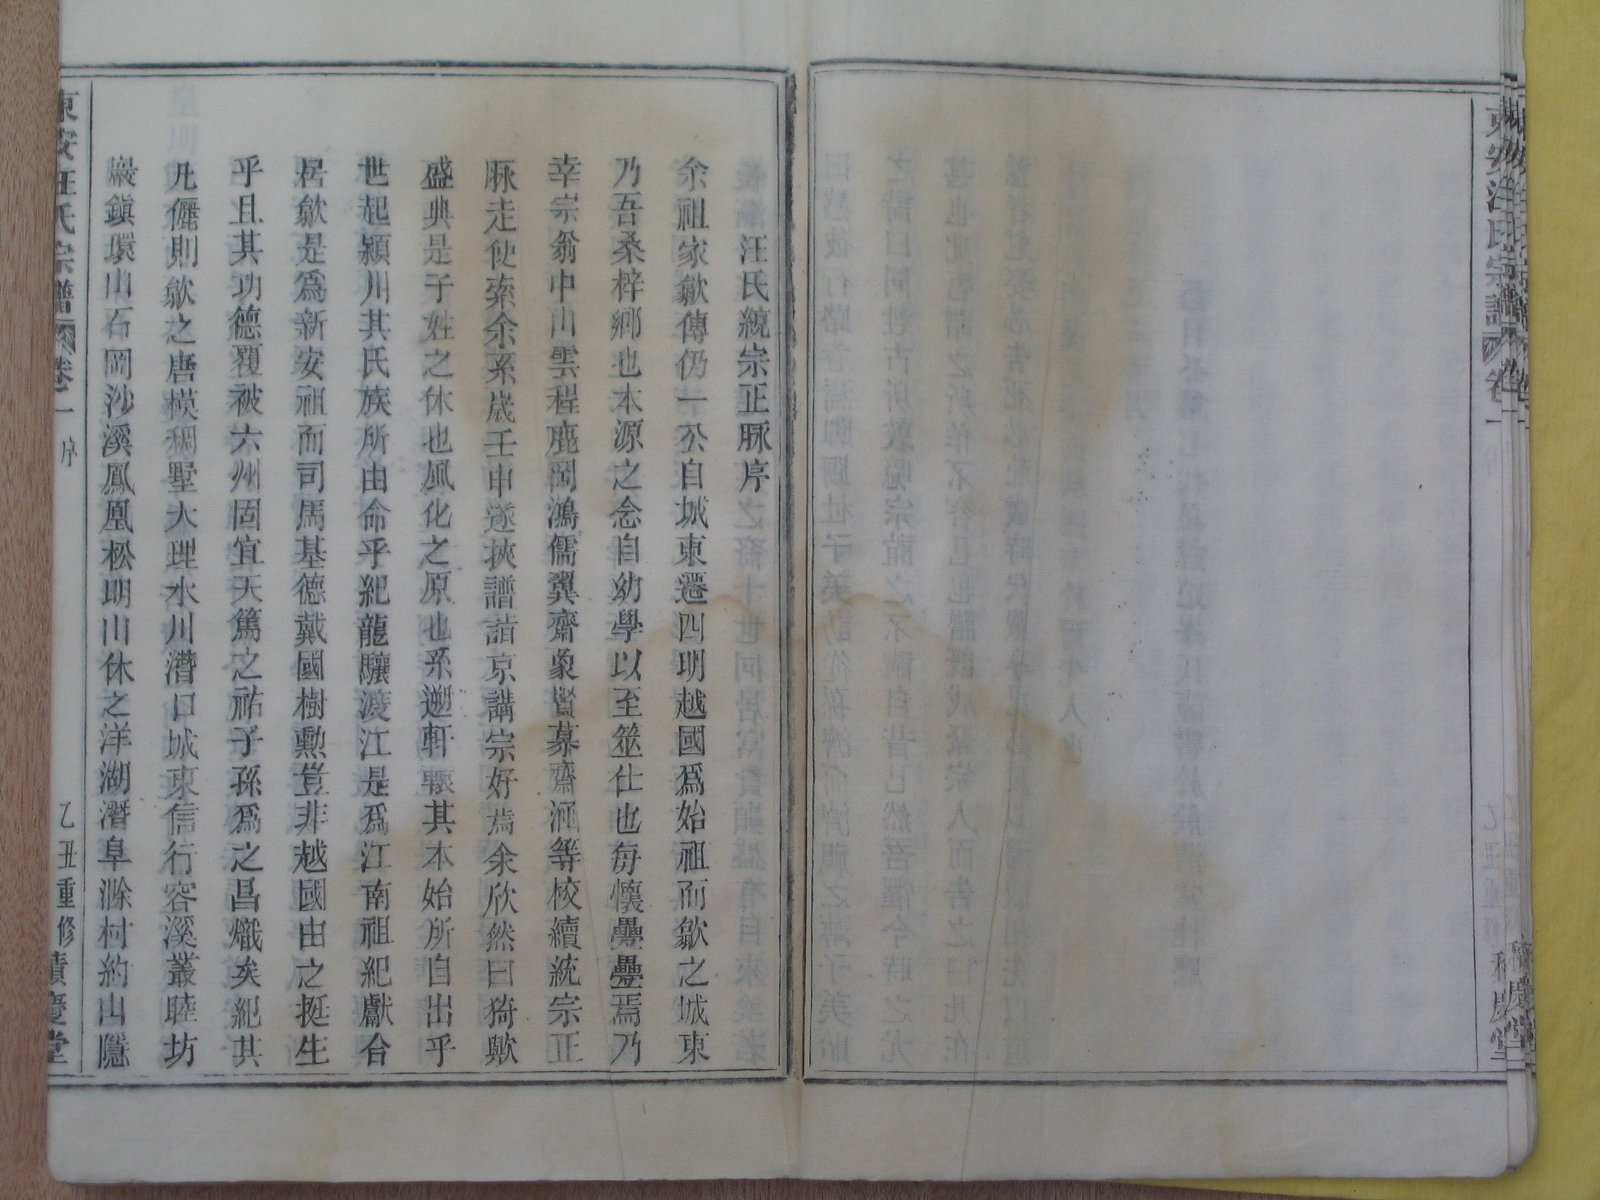 東安汪氏宗譜 卷一
積慶堂
汪氏統宗正脉序
余祖家歙傳仍一公自城東遷四明越國爲始祖而歙之城東
乃吾桑梓鄉也本源之念自幼學以至筮仕也每懷疊疊焉乃
幸宗翁中山雲程鹿岡鴻儒翼齋象賢慕齋涵等校續統宗正
脉走使索余系歲壬申遂挾譜詣京講宗好焉余欣然曰猗歟
盛典是子姓之休也風化之原也系遡軒轅其本始所自出乎
世起潁川其氏族所由命乎紀龍驤渡江是爲江南祖紀獻台
居歙是爲新安祖而司馬基德戴國樹勳豈非越國由之挺生
乎且其功德覆被六州固宜天篤之祐子孫爲之昌熾矣紀其
九儷則歙之唐模稠墅大理水川潛口城東信行容溪叢睦坊
巖鎮環山石岡沙溪鳳凰松明山休之洋湖潛阜滁村約山隱
東安汪氏宗譜 卷一 序 乙丑重修 積慶堂